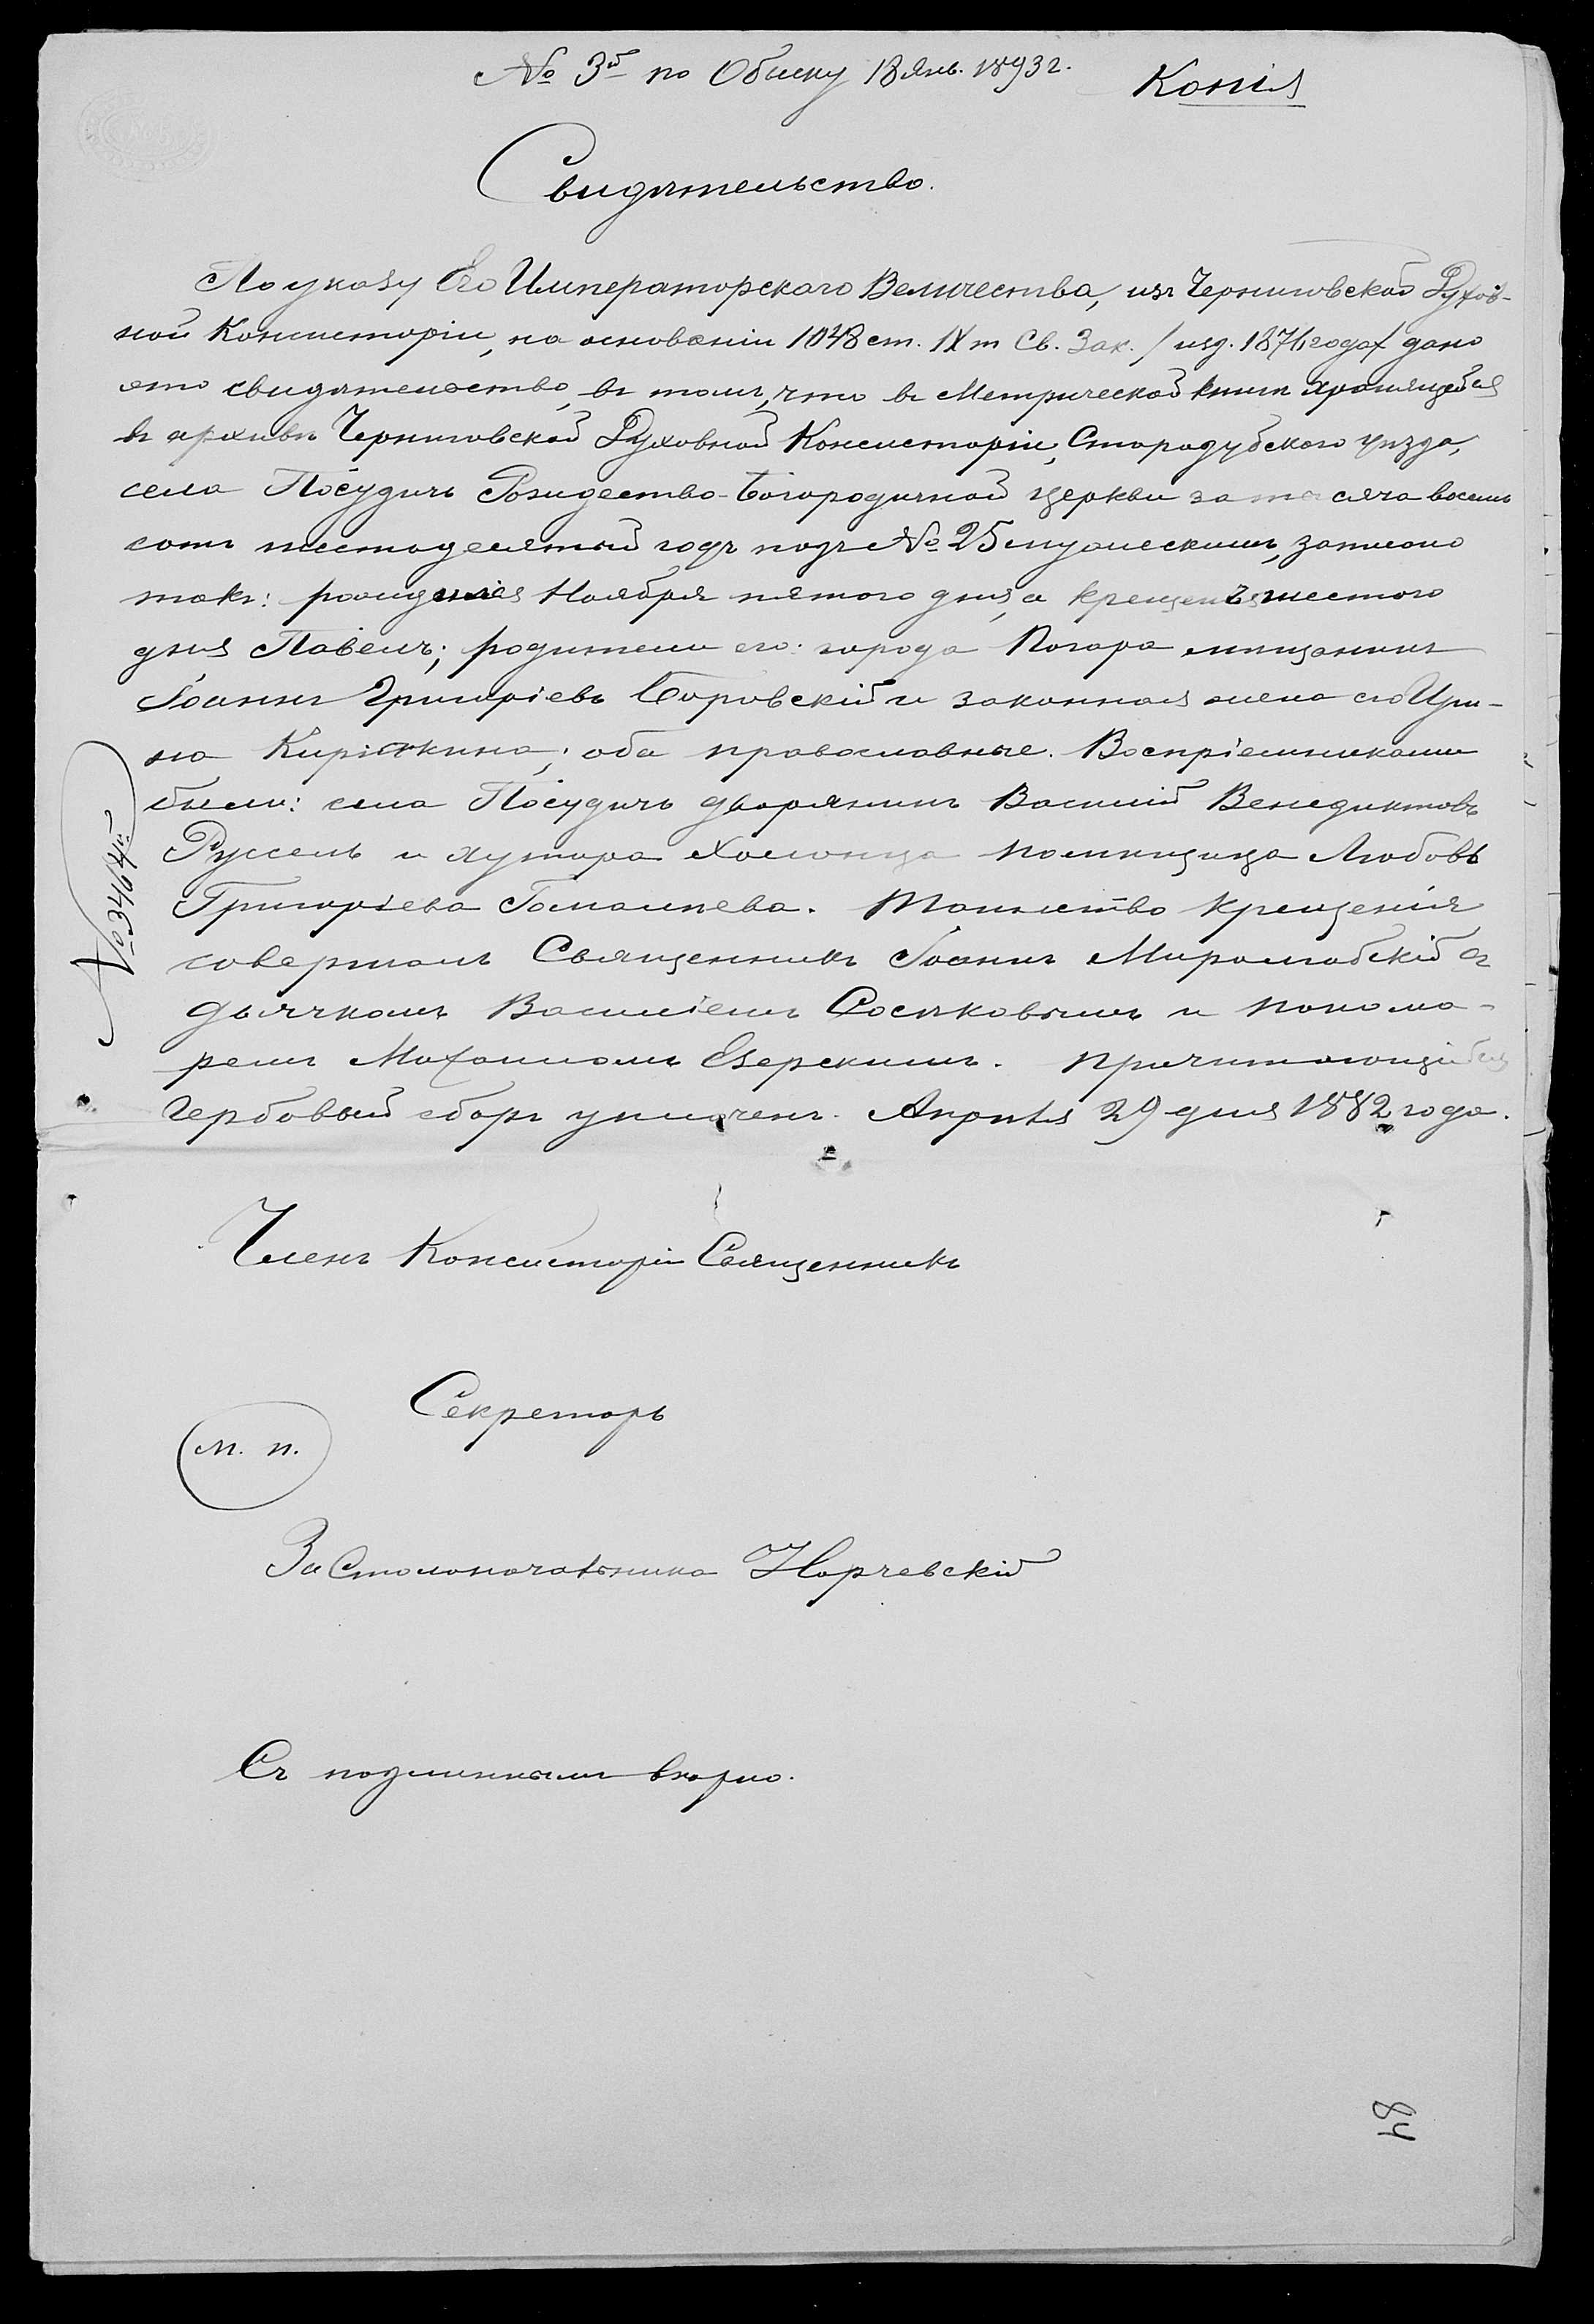 № 3й по Обыску 13 Янв. 1893 г.
Копія
Свидѣтельство.
По указу Его Императорскаго Величества, изъ Черниговской Духов-
ной Консисторіи, на основаніи 1048 ст. IX т Св. Зак. /изд. 1876 года/ дано
это свидѣтельство, въ томъ, что въ Метрической книгѣ хранящейся
въ архивѣ Черниговской Духовной Консисторіи, Стародубскаго уѣзда,
села Посудичь Рождество-Богородичной церкви за тысяча восемь
сотъ шестодесятый годъ подъ № 25 мужескимъ, записано
такъ: рожденія Ноября пятого дня, а крещенія шестого
дня Павелъ; родители его: города Погара мѣщанинъ
Іоаннъ Григоріевъ Боровскій и законная жена его Ири-
на Кирікина; оба православные. Воспріемниками
были: села Посудичь дворянинъ Василій Венедиктовъ
Руссель и хутора помѣщица Любовь
Григоріева Гамалѣева. Таинство крещенія
совершалъ Священникъ Іоаннъ Миролюбскій съ
дьячкомъ Василіемъ Сосѣковымъ и понома-
ремъ Езерскимъ. Причитающійся
Гербовый сборъ уплаченъ. Апрѣля 29 дня 1882 года.
№ 3464й
Членъ Консисторіи Священникъ
Секретарь
М. П.
За Столоначальника Норчевскій
Съ подлиннымъ вѣрно.
48